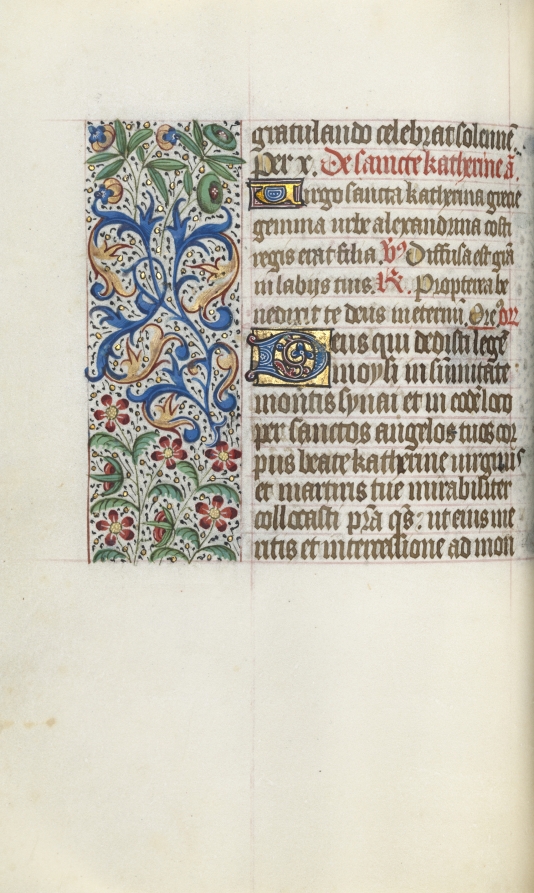 gratulando celebrat solenne
Per x. De sancte katherine a
Virgo sancta katherina grecie
gemma urbe alexandrina costi
regis erat filia. V9 Diffusa est grā
in labijs tuis. R. Propterea be
nedixit te deus in eternū. Ore9
Deus qui dedisti legē
moysi in sūmitate
montis synai et in eodē loco
per sanctos angelos tuos cor
pus beate katherine virginis
et martiris tue mirabiliter
collocasti pr̄a q̄s: ut eius me
ritis et intercessione ad mon